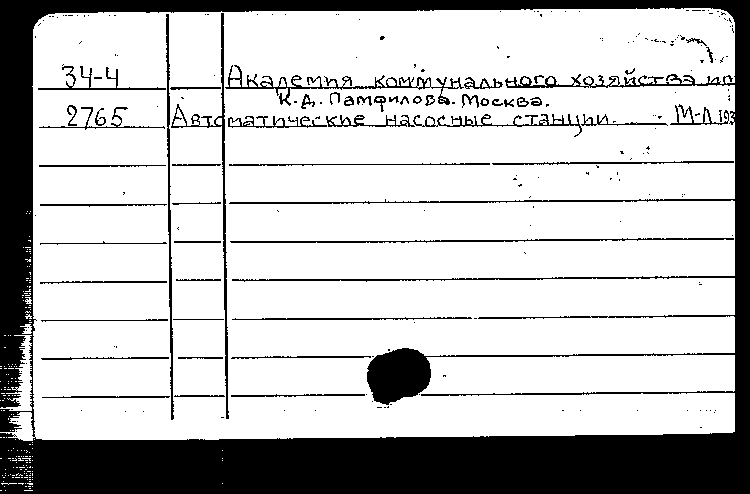 34-4 Академия коммунального хозяйства
К.Д. Памфилова. Москва.
2765 Автоматические насосные станции. М-Л 193